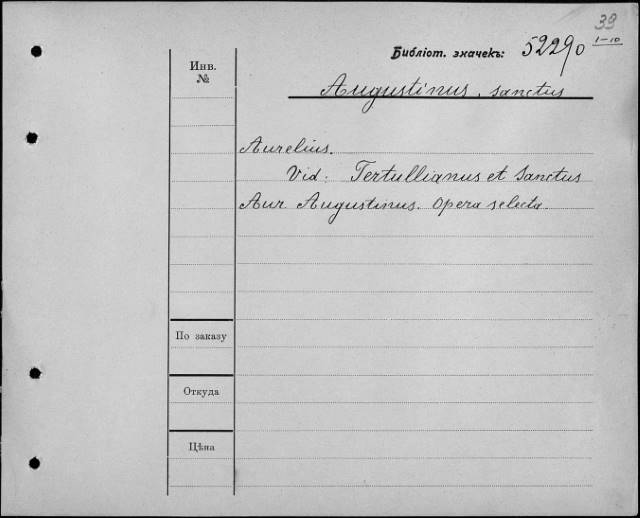 39
Библіот. значекъ: 52290 1-10
Инв. №
Augustinus, sanctus
Aurelius.
Vid: Tertullianus et Sanctus
Aur. Augustinus. Opera selecta.
По заказу
Откуда
Цѣна